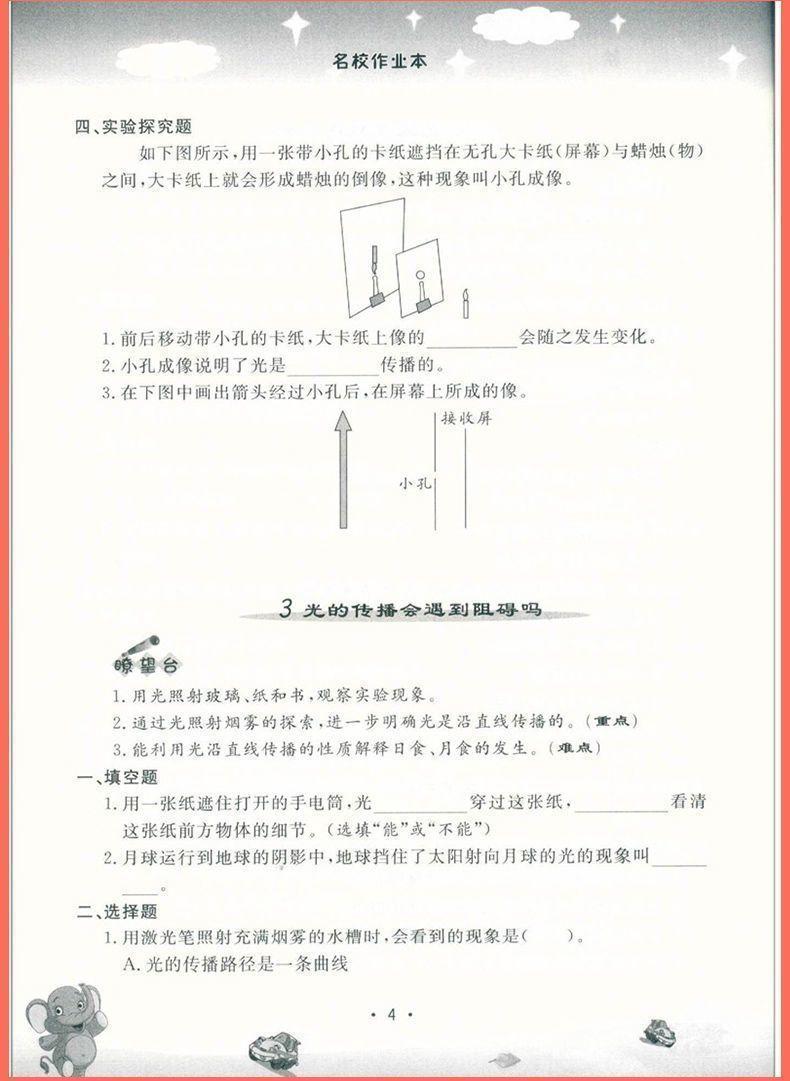 名校作业本
四、实验探究题
如下图所示,用一张带小孔的卡纸遮挡在无孔大卡纸(屏幕)与蜡烛(物)
之间,大卡纸上就会形成蜡烛的倒像,这种现象叫小孔成像。
1.前后移动带小孔的卡纸,大卡纸上像的__________会随之发生变化。
2.小孔成像说明了光是__________传播的。
3.在下图中画出箭头经过小孔后,在屏幕上所成的像。
接收屏
小孔
3 光的传播会遇到阻碍吗
瞭望台
1.用光照射玻璃、纸和书,观察实验现象。
2.通过光照射烟雾的探索,进一步明确光是沿直线传播的。(重点)
3.能利用光沿直线传播的性质解释日食、月食的发生。(难点)
一、填空题
1.用一张纸遮住打开的手电筒,光__________穿过这张纸,__________看清
这张纸前方物体的细节。(选填“能”或“不能”)
2.月球运行到地球的阴影中,地球挡住了太阳射向月球的光的现象叫______
____。
二、选择题
1.用激光笔照射充满烟雾的水槽时,会看到的现象是(  )。
A.光的传播路径是一条曲线
• 4 •